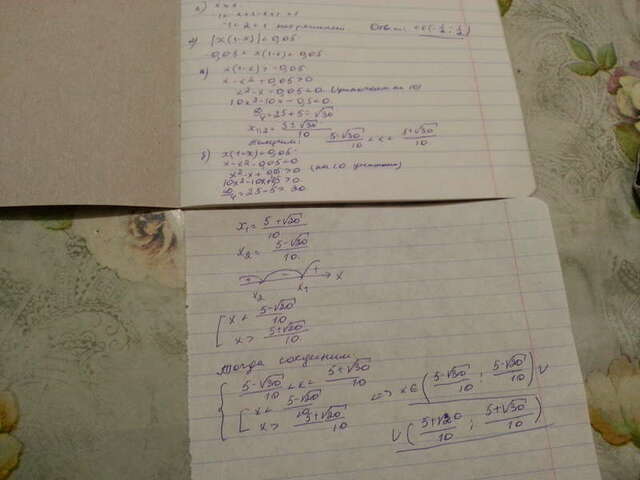 -1+2 < 1
Ответ: x∈(-1/2; 1/2)
2) |x(1-x)| < 0,05
-0,05 < x(1-x) < 0,05
а) x(1-x) > -0,05
x-x²+0,05>0
x²-x-0,05<0 (умножаем на 10)
10x²-10x-0,5<0
D/4=25+5=√30
x1,2 = (5±√30)/10
Получим: (5-√30)/10 < x < (5+√30)/10
б) x(1-x)<0,05
x-x²-0,05<0
x²-x+0,05>0 (на 10 умножаем)
10x²-10x+0,5>0
D/4=25-5=20
x₁ = (5+√20)/10
x₂ = (5-√20)/10
+ - + x
x₂ x₁
[ x < (5-√20)/10
x > (5+√20)/10
Тогда соединим
{ (5-√30)/10 < x < (5+√30)/10
[ x < (5-√20)/10 <=> x∈((5-√30)/10 ; (5-√20)/10) ∪
x > (5+√20)/10 ∪ ((5+√20)/10 ; (5+√30)/10)